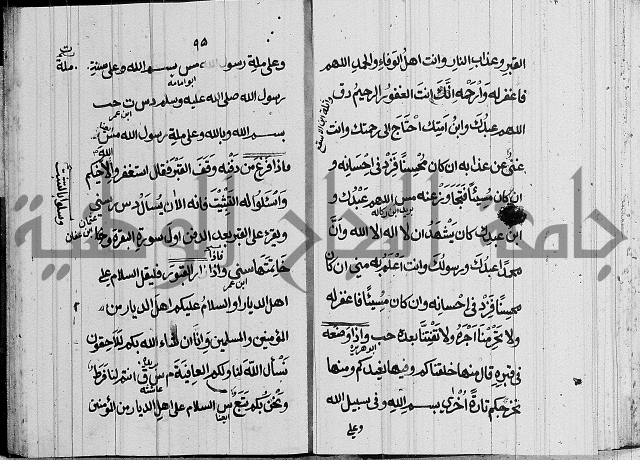 القبر وعذاب النار وانت اهل الوفاء والحمد اللهم
فاغفر له وارحمه انك انت الغفور الرحيم دق
اللهم عبدك وابن امتك احتاج الى رحمتك وانت
غنى عن عذابه ان كان محسنا فزد فى احسانه و
ان كان مسيئا فتجاوز عنه مس اللهم عبدك و
ابن عبدك كان يشهد ان لا اله الا الله وان
محمدا عبدك ورسولك وانت اعلم به منى ان كان
محسنا فزد فى احسانه وان كان مسيئا فاغفر له
ولا تحرمنا اجره ولا تفتنا بعده حب واذا وضعه
فى قبره قال منها خلقناكم وفيها نعيدكم ومنها
نخرجكم تارة اخرى بسم الله وفى سبيل الله
وعلى
٩٥
وعلى ملة رسول الله مس بسم الله وعلى سنة
رسول الله صلى الله عليه وسلم دس ت حب
بسم الله وبالله وعلى ملة رسول الله مس
فاذا فرغ من دفنه وقف على القبر فقال استغفروا الله لاخيكم
واسئلوا له التثبيت فانه الآن يسأل دس رسنى
ويقرء على القبر بعد الدفن اول سورة البقرة و
خاتمتها سنى واذا زار القبور فليقل السلام على
اهل الديار او السلام عليكم اهل الديار من
المؤمنين والمسلمين وانا ان شاء الله بكم للاحقون
نسأل الله لنا ولكم العافية م س ق انتم لنا فرط
ونحن لكم تبع س السلام على اهل الديار من المؤمنين
جامعة النجاح الوطنية